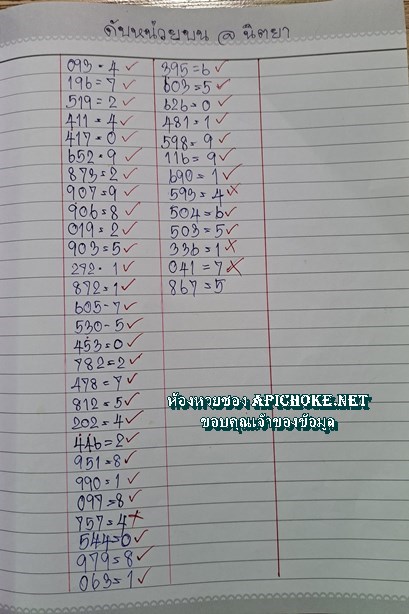 ดับหน่วยบน @ นิตยา
093 = 4 ✓
196 = 7 ✓
519 = 2 ✓
411 = 4 ✓
417 = 0 ✓
652 = 9 ✓
873 = 2 ✓
907 = 9 ✓
906 = 8 ✓
019 = 2 ✓
903 = 5 ✓
292 = 1 ✓
872 = 1 ✓
605 - 7 ✓
530 - 5 ✓
453 = 0 ✓
782 = 2 ✓
478 = 7 ✓
812 = 5 ✓
202 = 4 ✓
446 = 2 ✓
951 = 8 ✓
990 = 1 ✓
097 = 8 ✓
757 = 4 ✗
544 = 0 ✓
979 = 8 ✓
063 = 1 ✓
395 = 6 ✓
603 = 5 ✓
626 = 0 ✓
481 = 1 ✓
598 = 9 ✓
116 = 9 ✓
690 = 1 ✓
593 = 4 ✗
504 = 6 ✓
503 = 5 ✓
336 = 1 ✗
041 = 7 ✗
867 = 5
ห้องหวยซอง APICHOKE.NET
ขอบคุณเจ้าของข้อมูล